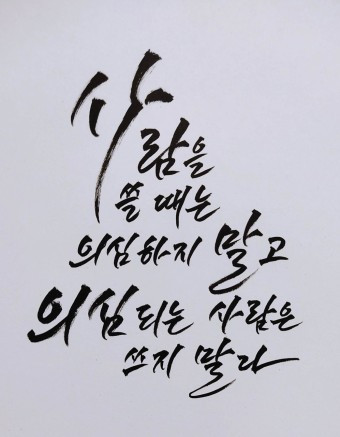 사
람을
쓸 때는
의심하지 말고
의심되는 사람은
쓰지 말라